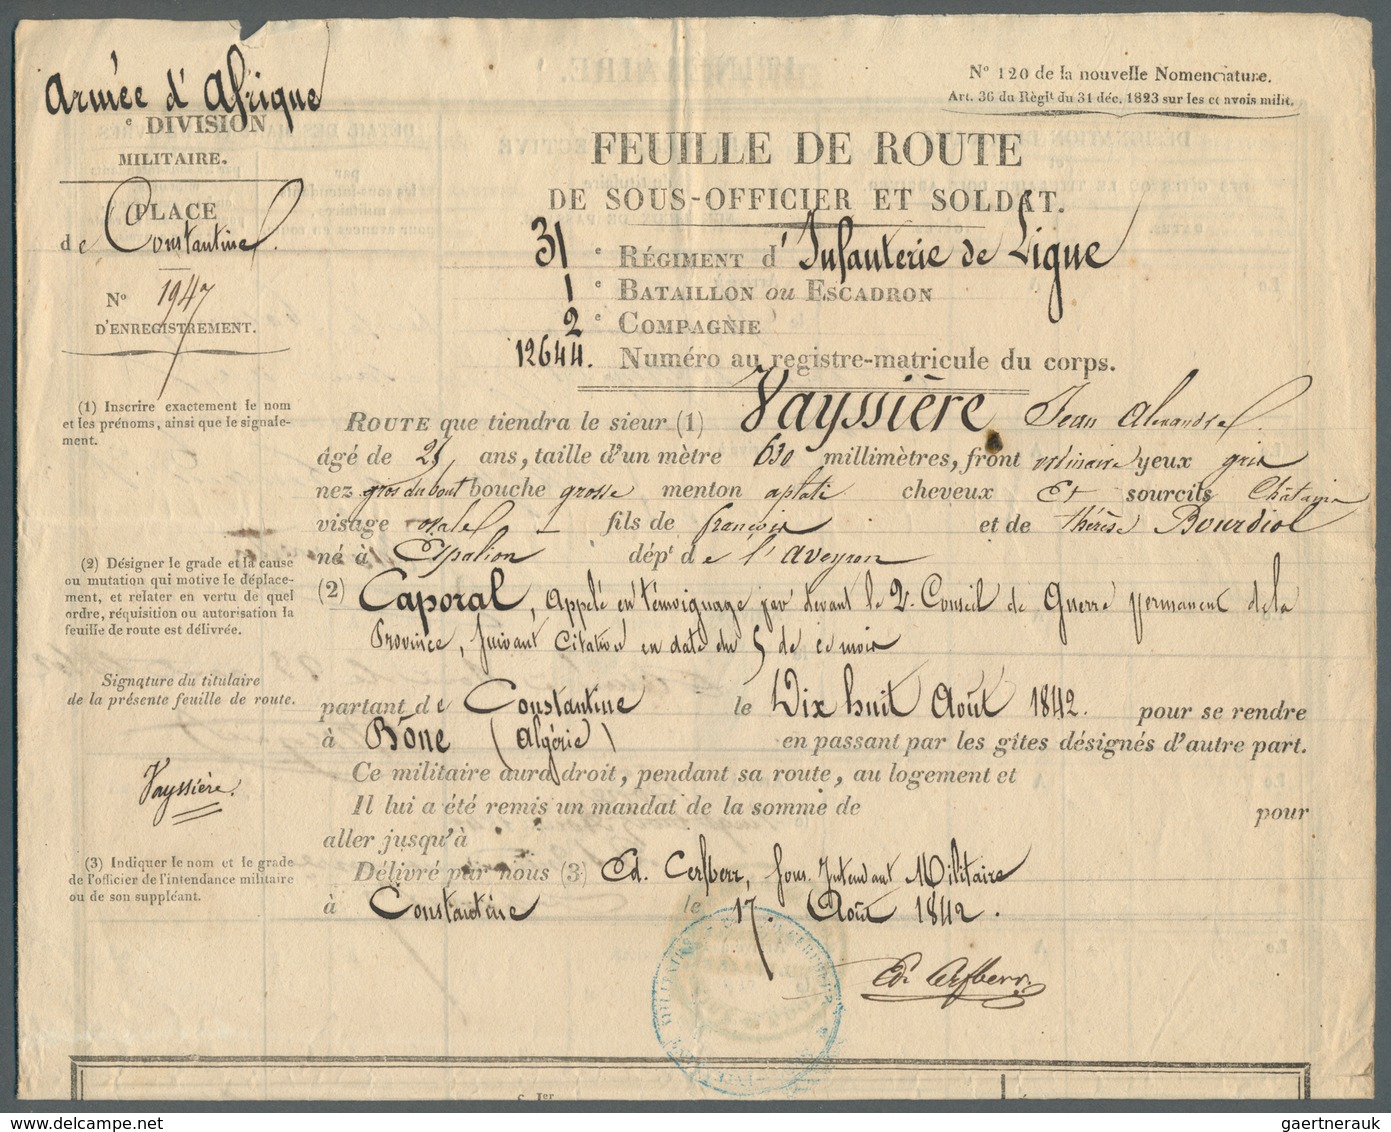 Armée d'Afrique
e DIVISION
MILITAIRE.
PLACE
de Constantine
N° 1947
D'ENREGISTREMENT.
N° 120 de la nouvelle Nomenclature.
Art. 36 du Règlt du 31 déc. 1823 sur les convois milit.
FEUILLE DE ROUTE
DE SOUS-OFFICIER ET SOLDAT.
31 e RÉGIMENT d'Infanterie de Ligne
1 e BATAILLON ou ESCADRON
2 e COMPAGNIE
12644. Numéro au registre-matricule du corps.
(1) Inscrire exactement le nom
et les prénoms, ainsi que le signale-
ment.
ROUTE que tiendra le sieur (1) Vayssière Jean Alexandre
âgé de ans, taille d'un mètre 630 millimètres, front ordinaire yeux gris
nez gros du bout bouche grosse menton aplati cheveux et sourcils Châtains
visage ovale fils de françois et de thérèse Bourdiol
né à Espalion dépt de l'aveyron
(2) Désigner le grade et la cause
ou mutation qui motive le déplace-
ment, et relater en vertu de quel
ordre, réquisition ou autorisation la
feuille de route est délivrée.
(2) Caporal, Appelé en témoignage par devant le 2e Conseil de Guerre permanent de la
Province, suivant citation en date du 5 de ce mois
Signature du titulaire
de la présente feuille de route.
Vayssière
partant de Constantine le Dix huit Août 1842. pour se rendre
à Bône (Algérie) en passant par les gîtes désignés d'autre part.
Ce militaire aura droit, pendant sa route, au logement et
Il lui a été remis un mandat de la somme de pour
aller jusqu'à
(3) Indiquer le nom et le grade
de l'officier de l'intendance militaire
ou de son suppléant.
Délivré par nous (3) Ed. Cerfberr, Sous Intendant Militaire
à Constantine le 17. Août 1842.
Ed. Cerfberr
gaertnerauk